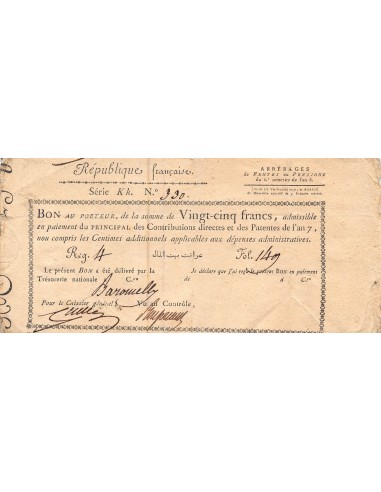 République française.
ARRÉRAGES
de RENTES ou PENSIONS
du 1.er semestre de l'an 8.
Série Kh. N.° 330.
BON AU PORTEUR, de la somme de Vingt-cinq francs, admissible
en paiement du PRINCIPAL des Contributions directes et des Patentes de l'an 7,
non compris les Centimes additionnels applicables aux dépenses administratives.
Reg. 4 Fol. 149
Le présent BON a été délivré par la
Trésorerie nationale à C.en
Je déclare que j'ai le présent BON en paiement
de d C.en
Pour le Caissier général Vu au Contrôle,